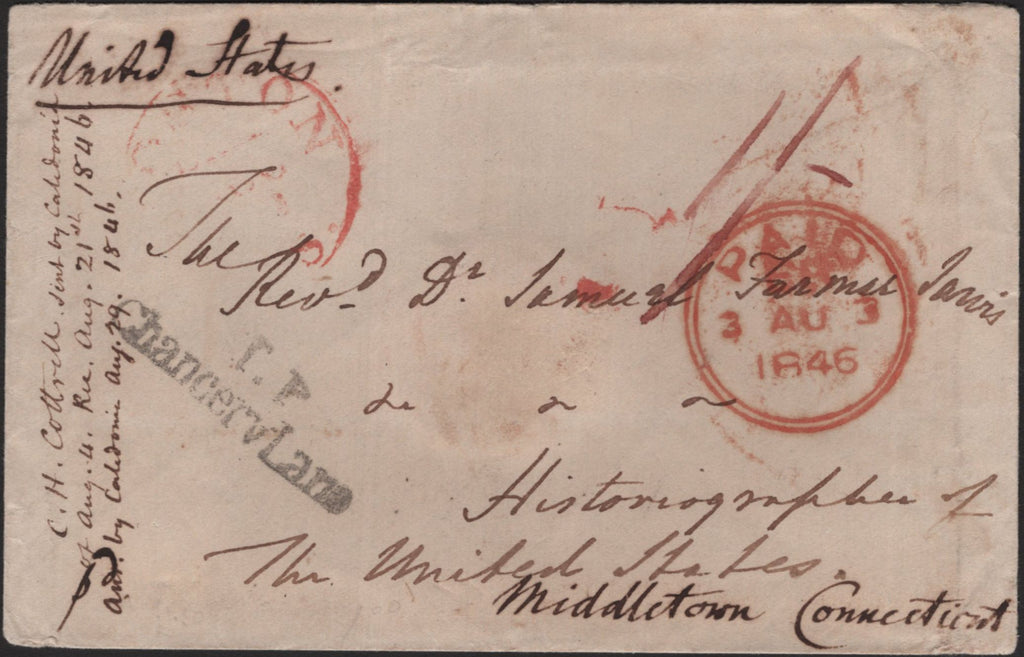 United States.
The
Revd. Dr. Samuel Farmer Jarvis
Historiographer of
The United States.
Middletown Connecticut
C. H. Cottrell sent by Caledonia
of Aug. 4. Rec. Aug. 21st 1846
and. by Caledonia Aug. 29. 1846.
PAID
3 AU 3
1846
T. P
Chancery Lane
1/-